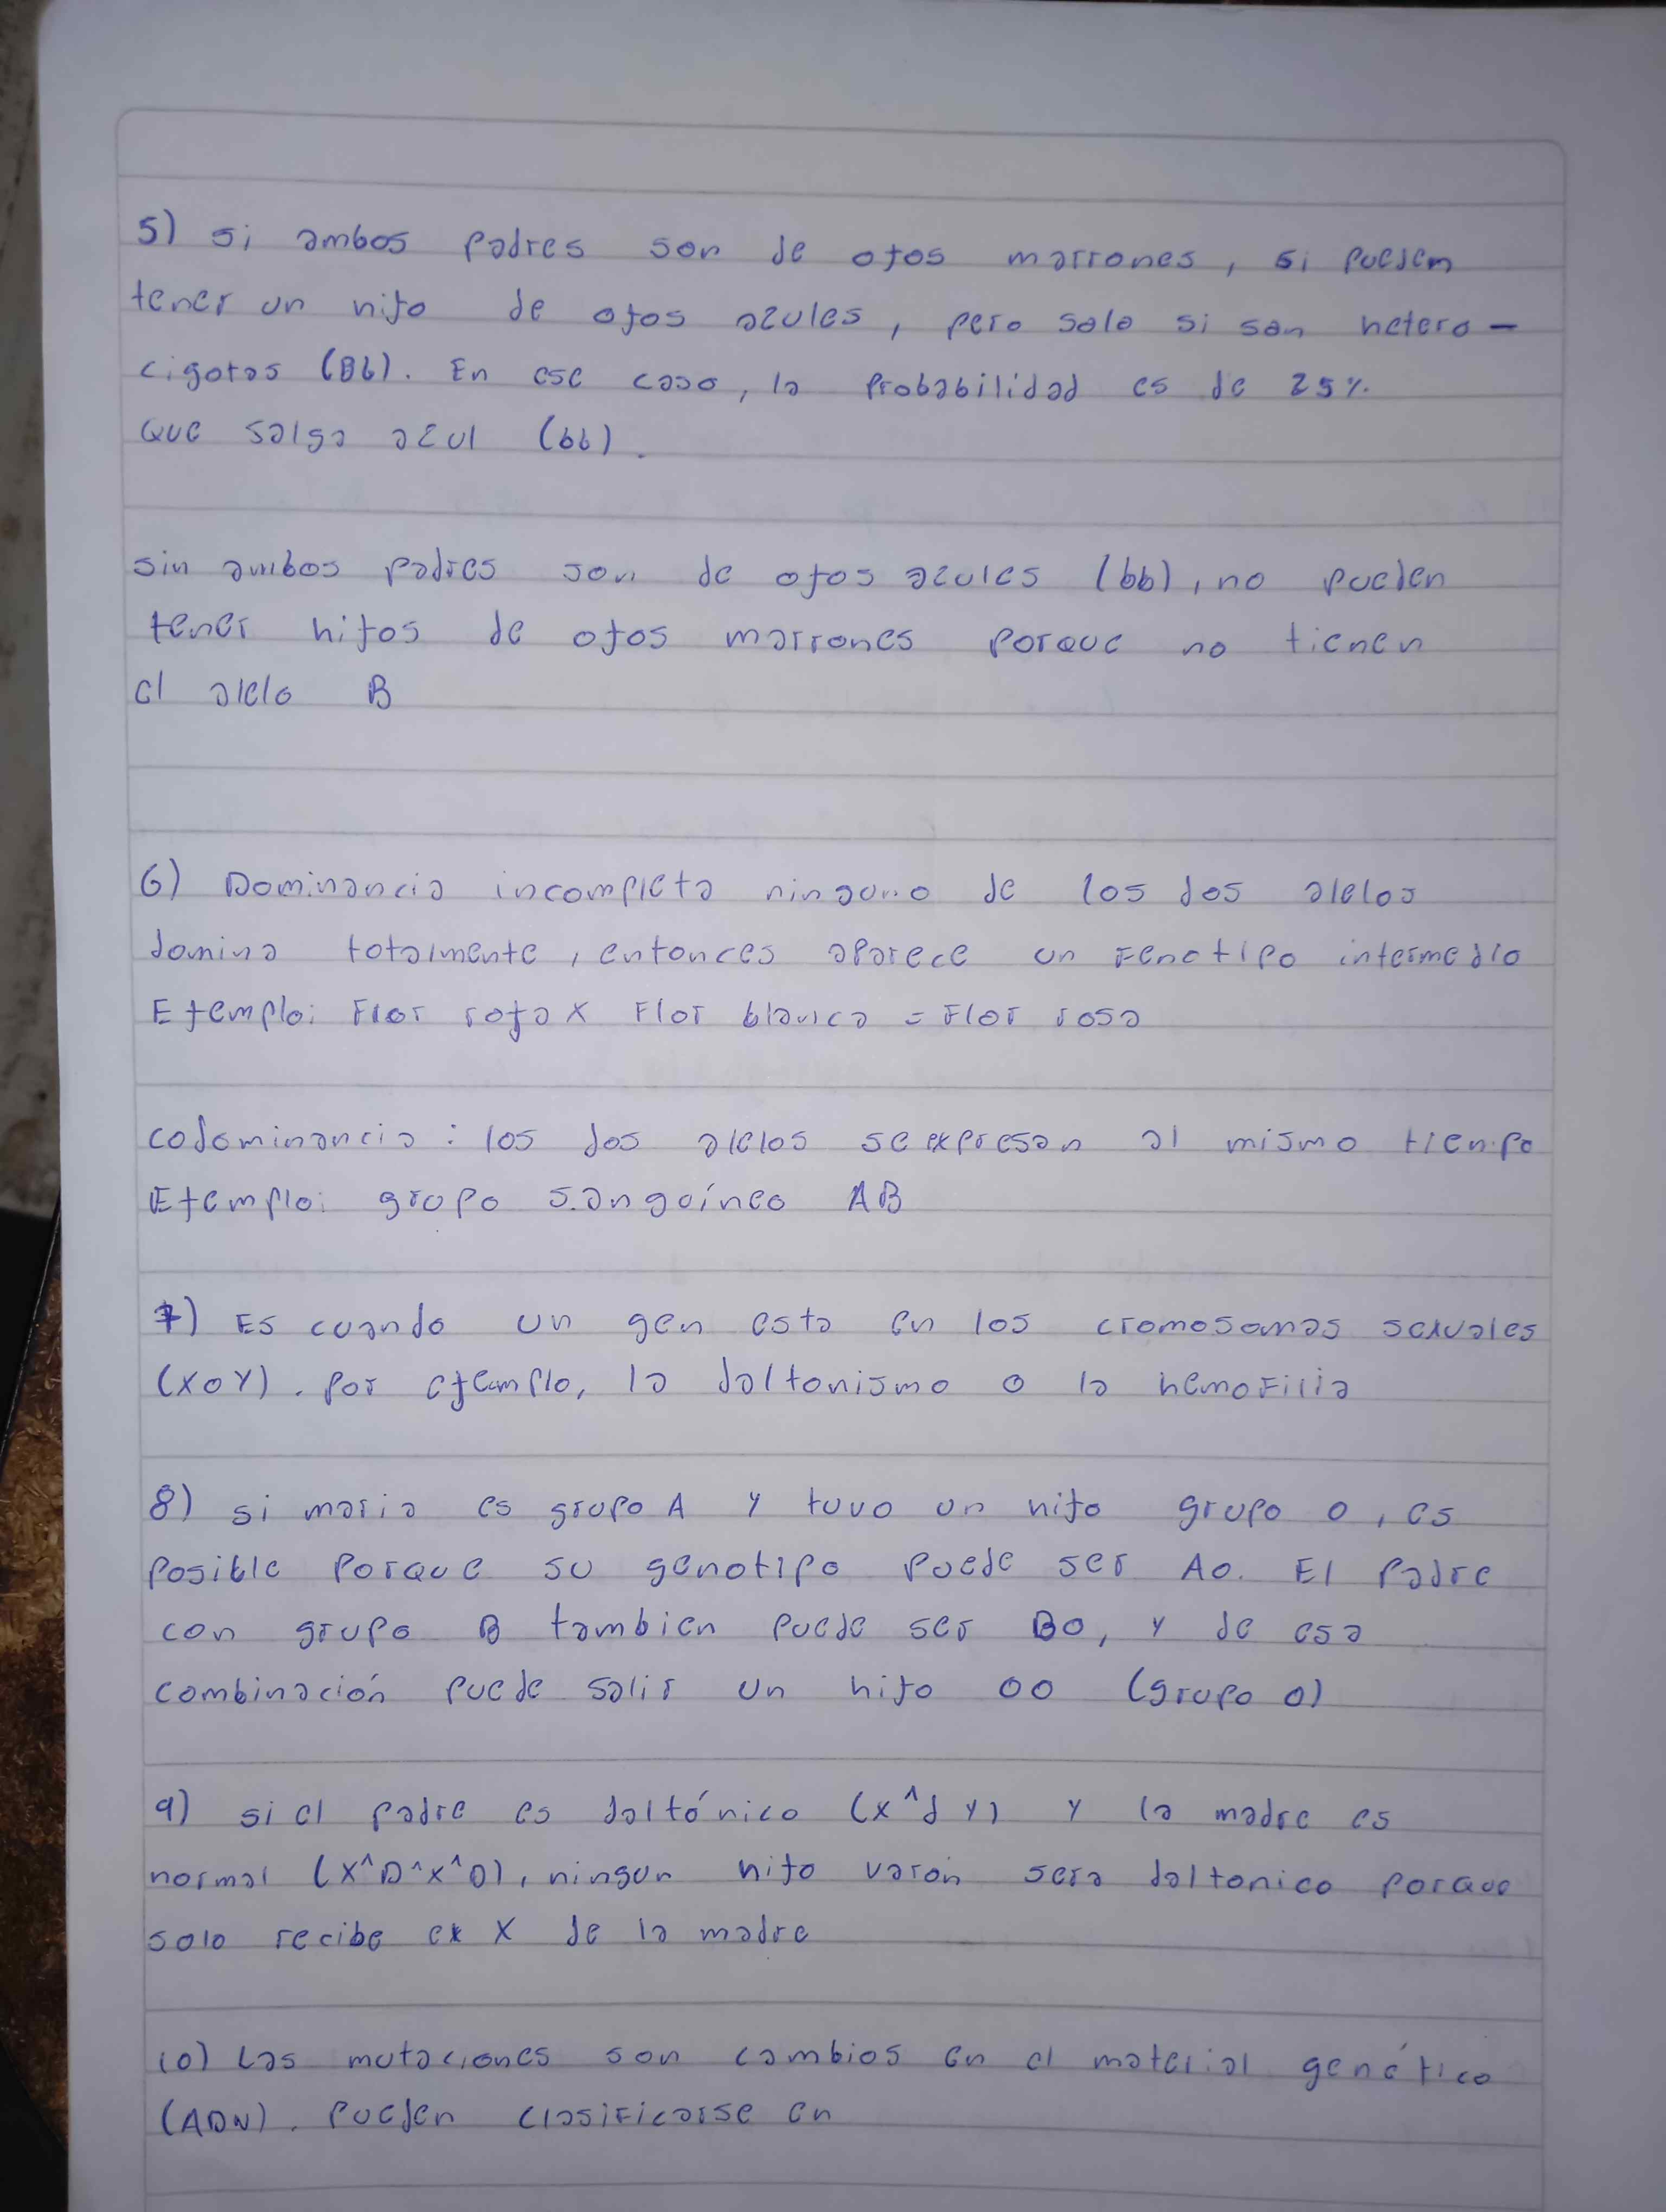 5) si ambos padres son de ojos marrones, si pueden
tener un hijo de ojos azules, pero solo si son hetero-
cigotos (Bb). En ese caso, la probabilidad es de 25%
que salga azul (bb).
sin ambos padres son de ojos azules (bb), no pueden
tener hijos de ojos marrones porque no tienen
el alelo B
6) Dominancia incompleta ninguno de los dos alelos
domina totalmente, entonces aparece un fenotipo intermedio
Ejemplo: Flor roja x Flor blanca = Flor rosa
codominancia: los dos alelos se expresan al mismo tiempo
Ejemplo: grupo sanguíneo AB
7) Es cuando un gen esta en los cromosomas sexuales
(X o Y). Por ejemplo, la daltonismo o la hemofilia
8) si maria es grupo A y tuvo un hijo grupo o, es
posible porque su genotipo puede ser Ao. El padre
con grupo B tambien puede ser Bo, y de esa
combinación puede salir un hijo oo (grupo o)
9) si el padre es daltónico (x^d y) y la madre es
normal (X^D^x^D), ningun hijo varón sera daltonico porque
solo recibe el X de la madre
10) Las mutaciones son cambios en el material genético
(ADN). Pueden clasificarse en